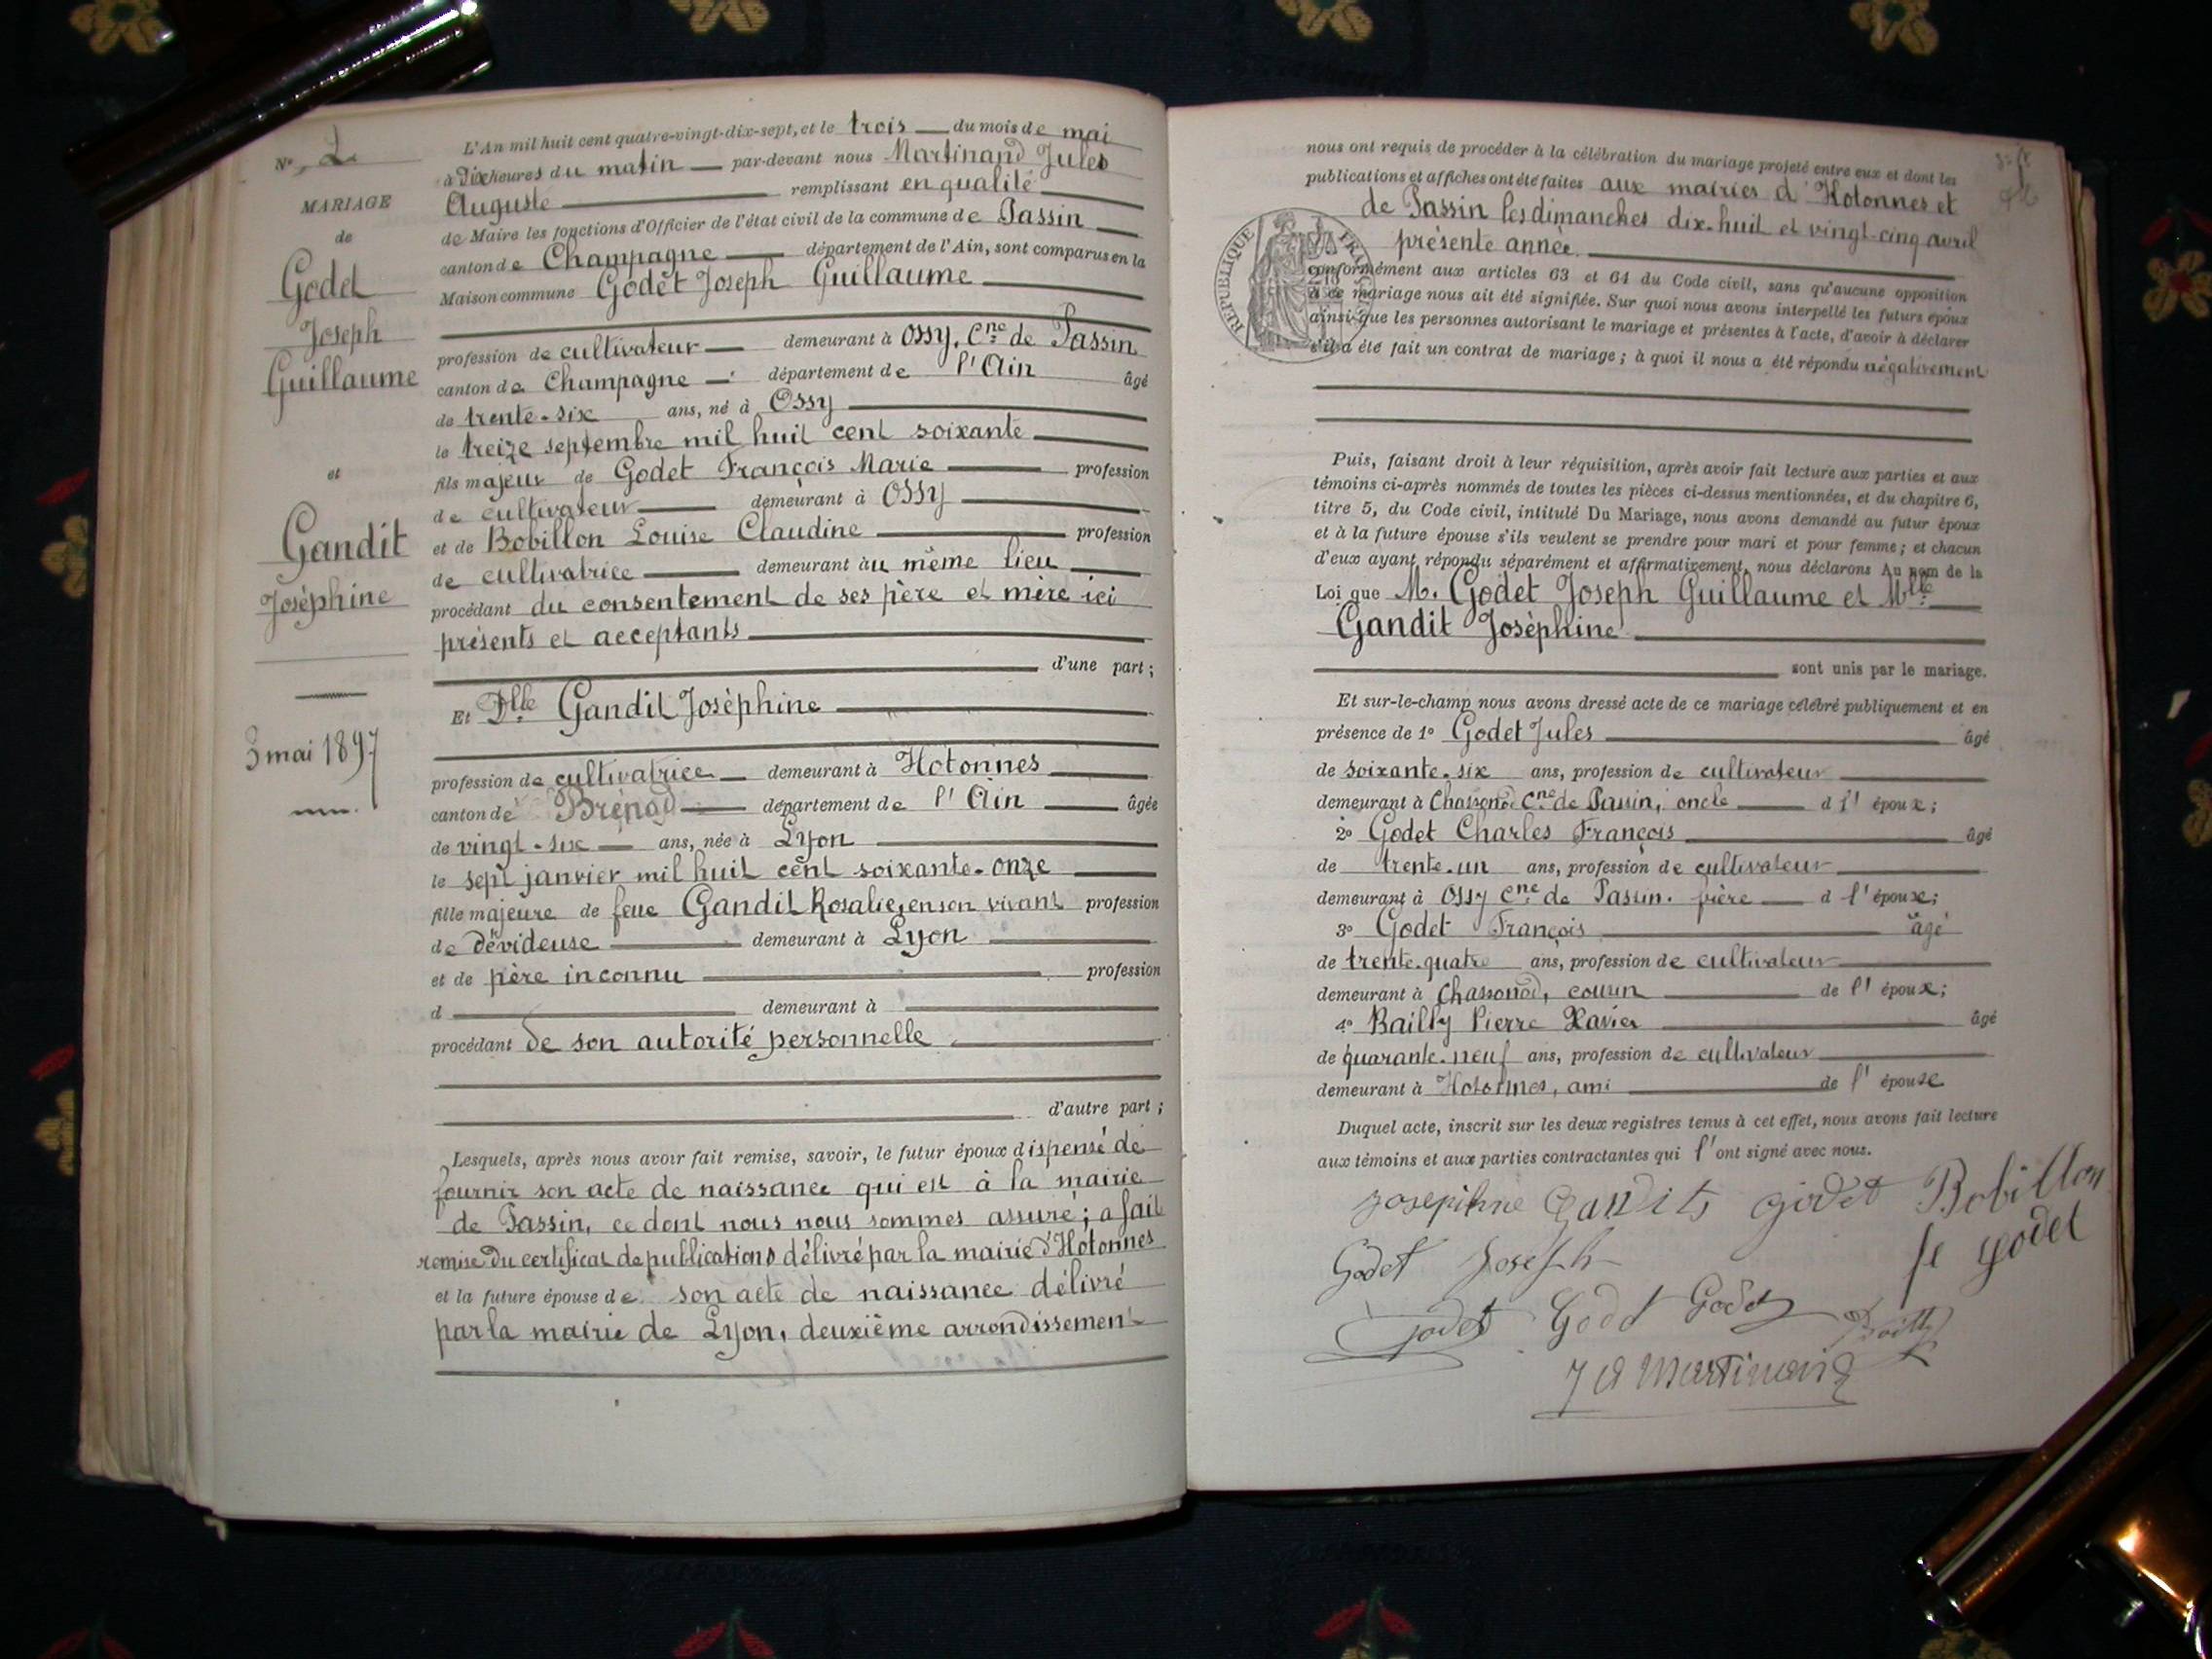 N° 2
MARIAGE
de
Godet
Joseph
Guillaume
et
Gandit
Josèphine
3 mai 1897
L'An mil huit cent quatre-vingt-dix-sept, et le trois du mois de mai
à Dix heures du matin par-devant nous Martinand Jules
Auguste remplissant en qualité
de Maire les fonctions d'Officier de l'état civil de la commune de Passin
canton de Champagne département de l'Ain, sont comparus en la
Maison commune Godet Joseph Guillaume
profession de cultivateur demeurant à Ossy, Cne de Passin
canton de Champagne département de l'Ain âgé
de trente-six ans, né à Ossy
le treize septembre mil huit cent soixante
fils majeur de Godet François Marie profession
de cultivateur demeurant à Ossy
et de Bobillon Louise Claudine profession
de cultivatrice demeurant au même lieu
procédant du consentement de ses père et mère ici
présents et acceptants
d'une part ;
Et Dlle Gandit Josèphine
profession de cultivatrice demeurant à Hotonnes
canton de Brénod département de l'Ain âgée
de vingt-six ans, née à Lyon
le sept janvier mil huit cent soixante-onze
fille majeure de feue Gandit Rosalie, en son vivant profession
de dévideuse demeurant à Lyon
et de père inconnu profession
d demeurant à
procédant de son autorité personnelle
d'autre part ;
Lesquels, après nous avoir fait remise, savoir, le futur époux dispensé de
fournir son acte de naissance qui est à la mairie
de Passin, ce dont nous nous sommes assuré ; a fait
remise du certificat de publications délivré par la mairie d'Hotonnes
et la future épouse de son acte de naissance délivré
par la mairie de Lyon, deuxième arrondissement
nous ont requis de procéder à la célébration du mariage projeté entre eux et dont les
publications et affiches ont été faites aux mairies d'Hotonnes et
de Passin les dimanches dix-huit et vingt-cinq avril
présente année
RÉPUBLIQUE FRANÇAISE
conformément aux articles 63 et 64 du Code civil, sans qu'aucune opposition
à ce mariage nous ait été signifiée. Sur quoi nous avons interpellé les futurs époux
ainsi que les personnes autorisant le mariage et présentes à l'acte, d'avoir à déclarer
s'il a été fait un contrat de mariage ; à quoi il nous a été répondu négativement
Puis, faisant droit à leur réquisition, après avoir fait lecture aux parties et aux
témoins ci-après nommés de toutes les pièces ci-dessus mentionnées, et du chapitre 6,
titre 5, du Code civil, intitulé Du Mariage, nous avons demandé au futur époux
et à la future épouse s'ils veulent se prendre pour mari et pour femme ; et chacun
d'eux ayant répondu séparément et affirmativement, nous déclarons Au nom de la
Loi que M. Godet Joseph Guillaume et Mlle
Gandit Josèphine
sont unis par le mariage.
Et sur-le-champ nous avons dressé acte de ce mariage célébré publiquement et en
présence de 1° Godet Jules âgé
de soixante-six ans, profession de cultivateur
demeurant à Chassonod Cne de Passin, oncle d l' époux ;
2° Godet Charles François âgé
de trente-un ans, profession de cultivateur
demeurant à Ossy Cne de Passin. frère d l' épouse ;
3° Godet François âgé
de trente-quatre ans, profession de cultivateur
demeurant à Chassonod, cousin de l' époux ;
4° Bailly Pierre Xavier âgé
de quarante-neuf ans, profession de cultivateur
demeurant à Hotonnes, ami de l' épouse
Duquel acte, inscrit sur les deux registres tenus à cet effet, nous avons fait lecture
aux témoins et aux parties contractantes qui l'ont signé avec nous.
Josephine Gandit godet Bobillon
Godet Joseph fe godet
Godet Godet Godet Bailly
J A Martinand